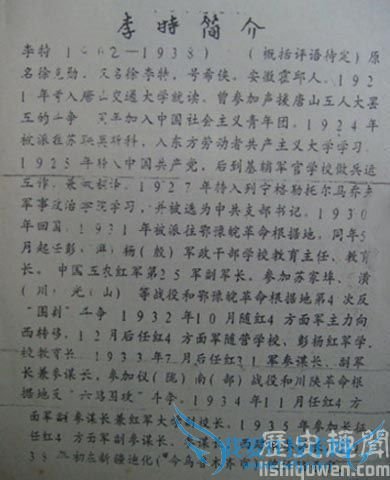 李特简介
李特 1 02—1938） （概括评语待定）原
名徐克勋，又名徐李特，号希侠，安徽霍邱人。192
1年考入唐山交通大学就读。曾参加声援唐山五人大罢
工的斗争 同年加入中国社会主义青年团。1924年
被派往苏联莫斯科，入东方劳动者共产主义大学学习。
1925年转入中国共产党，后到基辅军官学校做兵运
工作、兼 翻译。1927年转入列宁格勒托尔马乔夫
军事政治学院学习，并被选为中共支部书记。1930
年回国。1931年被派往鄂豫皖革命根据地，同年5
月起任彭 湃）杨（殷）军政干部学校教育主任、教育
长。中国工农红军第25军副军长。参加苏家埠、潢
（川）光（山）等战役和鄂豫皖革命根据地第4次反
“围剿”斗争 1932年10月随红4方面军主力向
西转移，12月后任红4方面军随营学校、彭杨红军学
校教育长 1933年7月后任红31军参谋长、副军
长兼参谋长，参加仪（陇）南（部）战役和川陕革命根
据地反“六路围攻”斗争。1934年11月任红4方
面军副参谋长兼红军大学 校长，1935年参加长征
任红4方面军副参谋长、参谋长
38年初在新疆迪化（今乌
历史趣闻
lishiquwen.com